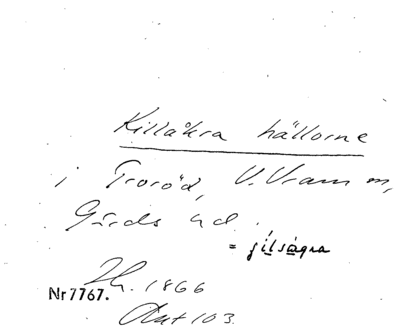 Killåkra hällorne
i Troröd, V. Vram sn,
Gärds hd.
= jílságra
Lh. 1866
Nr 7767.
Akt 103